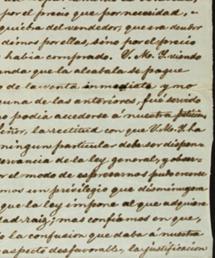 por el precio que por necesidad,
quiebra del vendedor, que era deudor
de inos por ellas, sino por el precio
había comprado. V. M. I. viendo
anda que la alcabala se pague
de la venta inmediata y no
guna de las anteriores, fue servido
no podía accederse á nuestra
señor, la rectitud con que V. M. I. ha
ningun particular debe ser dispen
servancia de la ley general, y obser
el modo de espresarnos pudo
mos un privilegio que disminuyera
que la ley impone al que adquiere
dad raiz; mas confiamos en que,
de la confusion que daba á nuestra
aspecto desfavorable, la justificacion